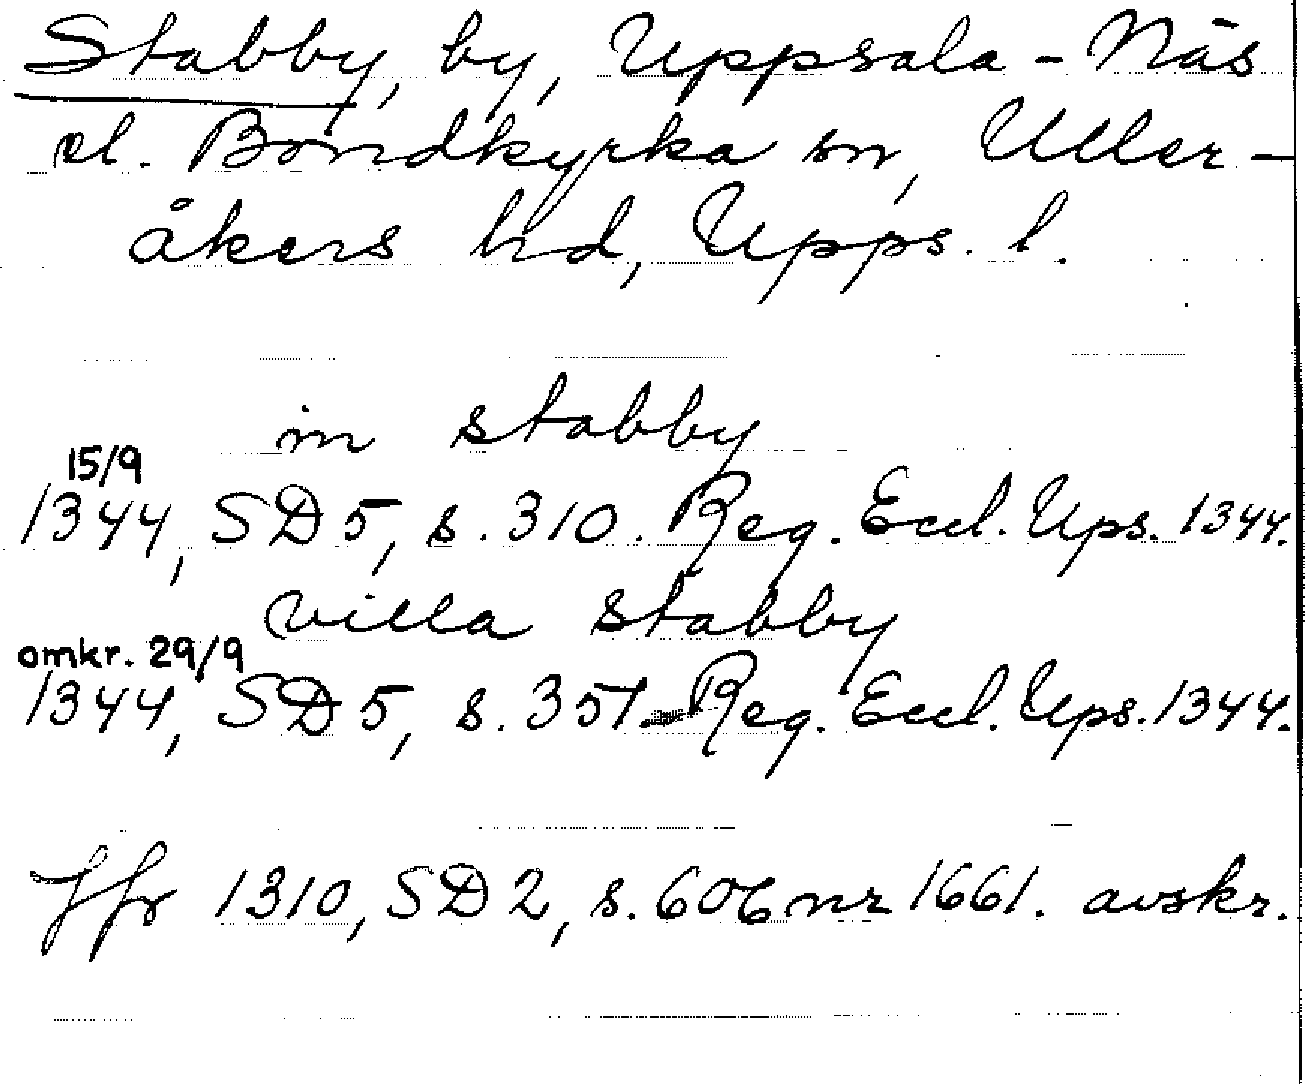 Stabby, by, Uppsala-Näs
el. Bondkyrka sn, Uller-
åkers hd, Upps. l.
in stabby
15/9
1344, SD 5, s. 310. Reg. Eccl. Ups. 1344.
villa stabby
omkr. 29/9
1344, SD 5, s. 351. Reg. Eccl. Ups. 1344.
Jfr 1310, SD 2, s. 606 nr 1661. avskr.